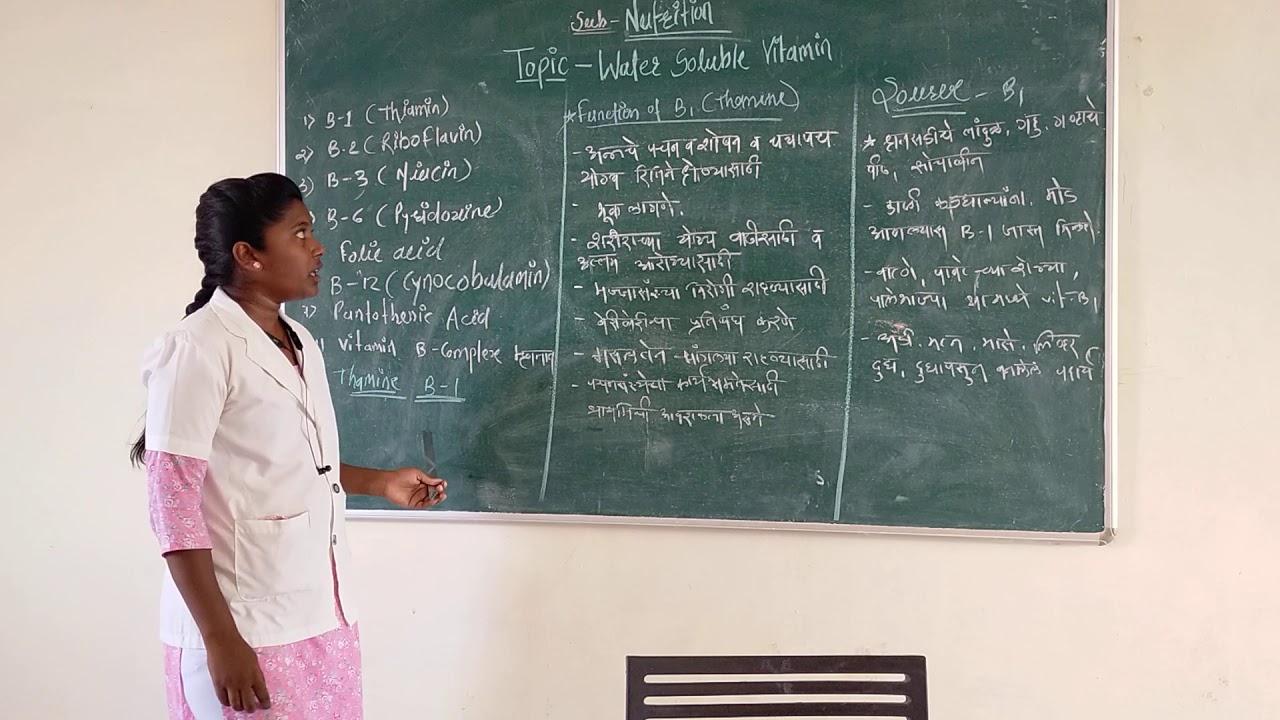 Sub - Nutrition
Topic - Water Soluble Vitamin
1) B-1 (Thiamin)
2) B-2 (Riboflavin)
3) B-3 (Niacin)
B-6 (Pyridoxine)
Folic acid
B-12 (Cynocobalamin)
7) Pantothenic Acid
Vitamin B-Complex म्हणतात
Thamine B-1
* Function of B1 (Thamine)
- अन्नाचे पचन व शोषण व चयापचय
योग्य रितिने होण्यासाठी
- भूक लागणे.
- शरीराच्या योग्य वाढीसाठी व
उत्तम आरोग्यासाठी
- मज्जासंस्था निरोगी राहण्यासाठी
- बेरीबेरीचा प्रतिबंध करणे
- मानसिक चांगल्या राहण्यासाठी
- पचनसंस्थेचा कार्यक्षमतेसाठी
थायमिनची आवश्यकता असते
Source - B1
* हातसडीचे तांदुळ, गहु, गव्हाचे
पीठ, सोयाबीन
- डाळी कडधान्यांना, मोड
आणल्यास B-1 जास्त मिळते.
पालेभाज्या यामध्ये vit-B1
- अंडी, मटन, मासे, लिव्हर
दुध, दुधापासुन बनलेले पदार्थ